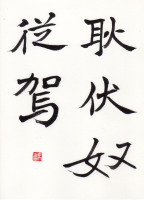 耿伏奴
従駕